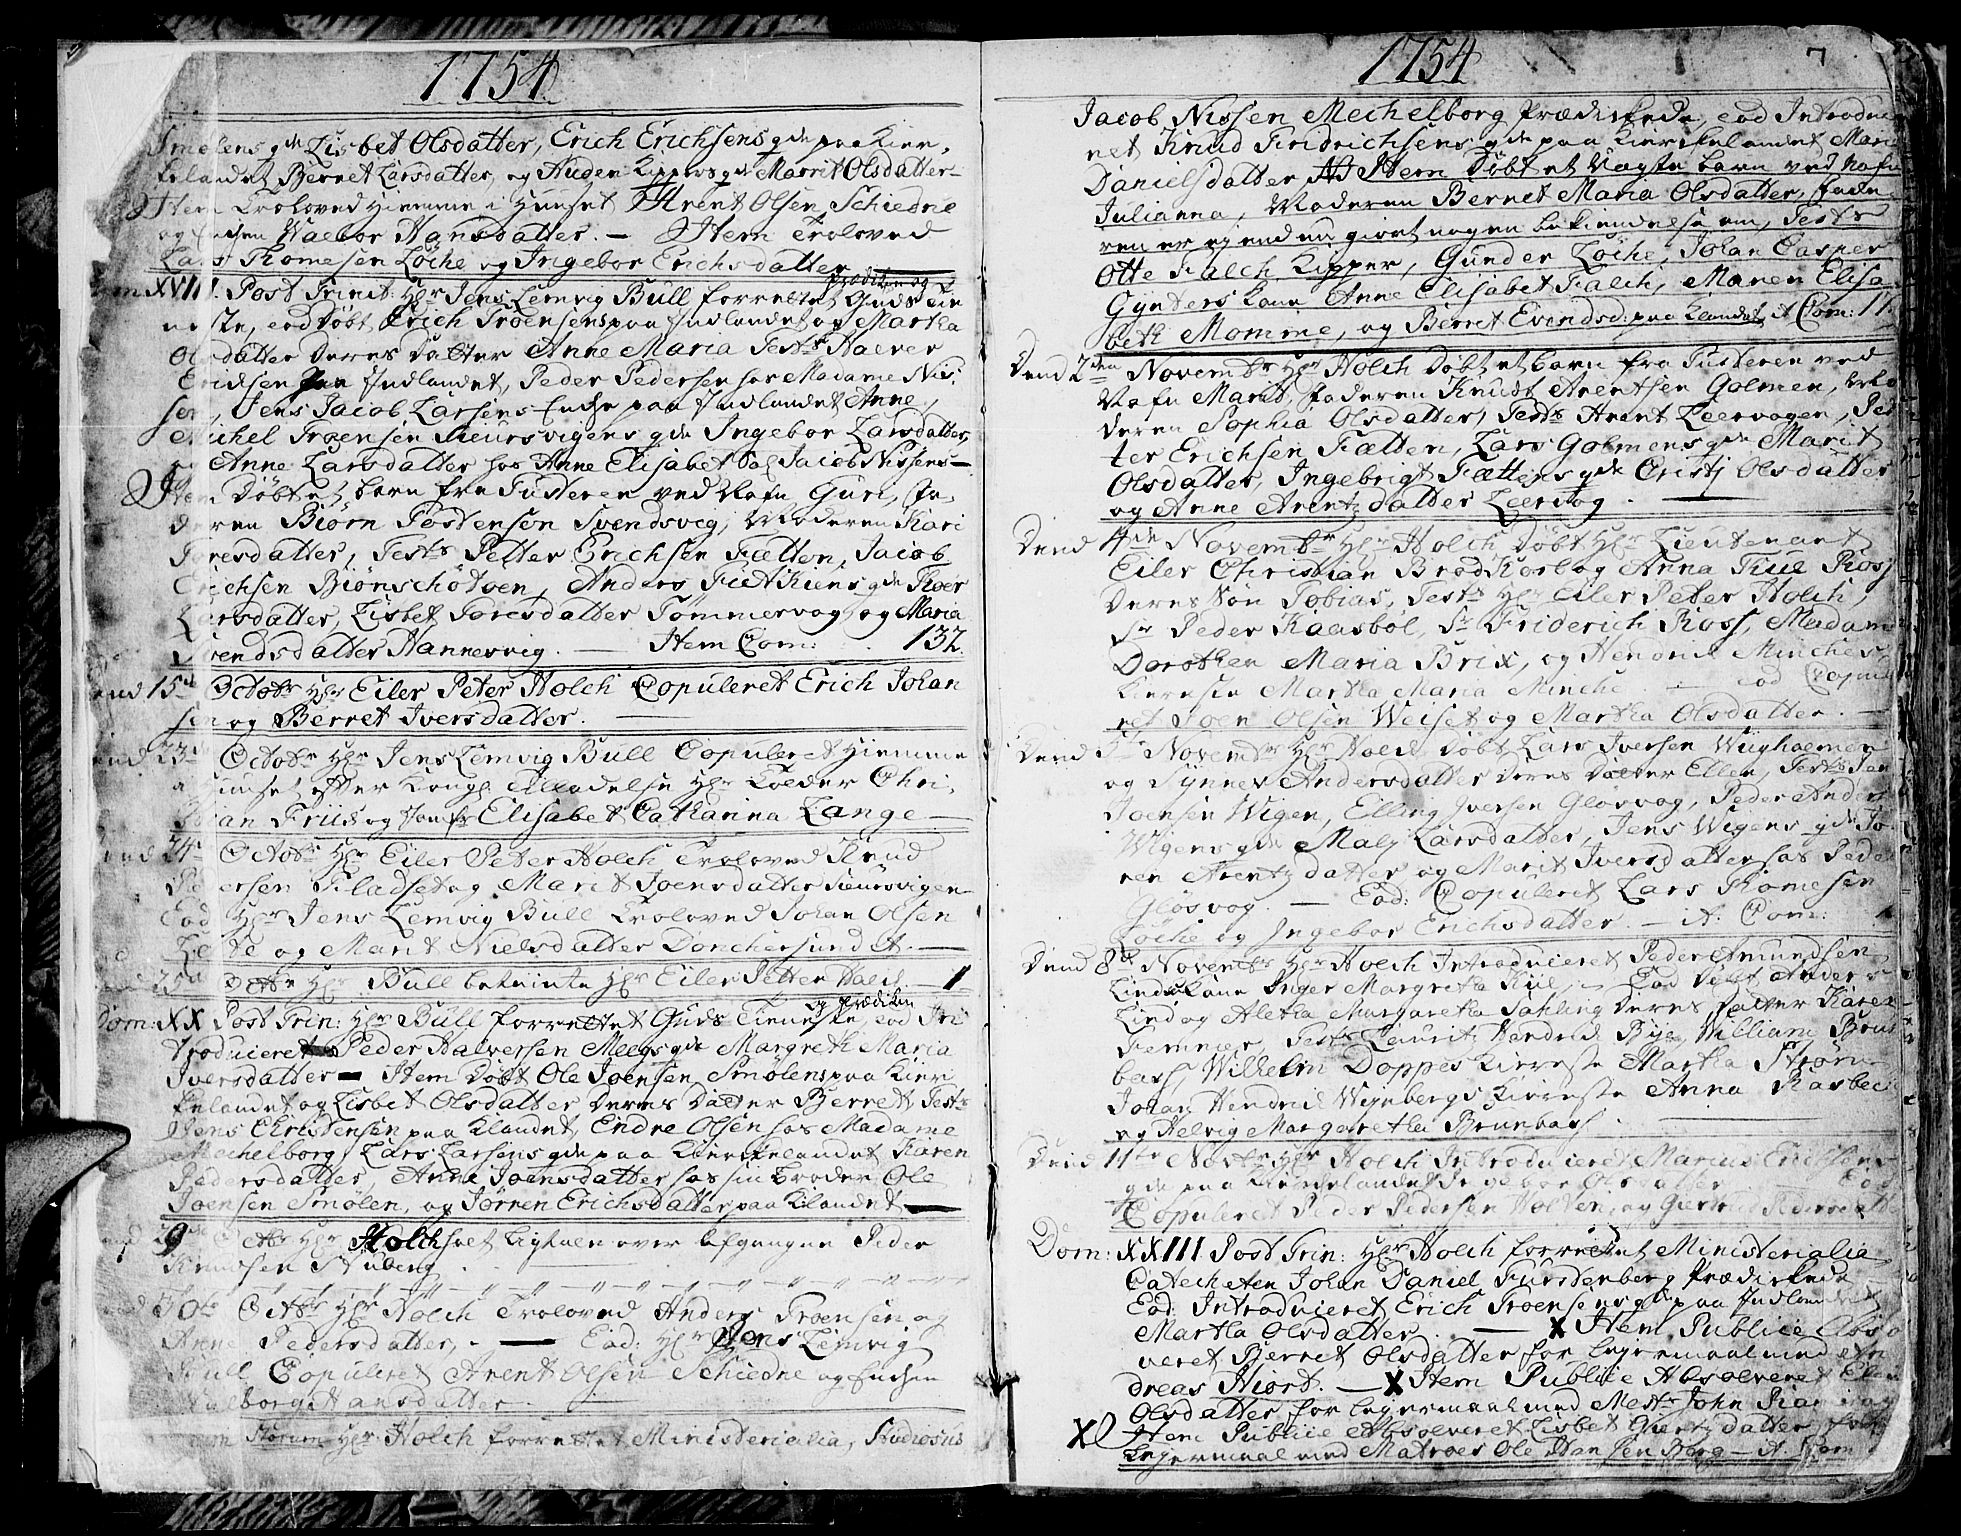 1754
Smølens qde Lisbet Olsdatter, Erich Erichsens qde paa Kier,
kelandet Berret Larsdatter, og Auden Kippers qde Marrit Olsdatter
Item Troloved Hiemme i Huuset Arent Olsen Schiedne
og Enchen Walbor Hansdatter. — Item Troloved
Lars Thomesen Løche og Ingebor Erichsdatter
Dom: XVIII. Post Trinit: Hr Jens Lemvig Bull forrettet Guds tie
prædiken og
neste, eod døbt Erich Troensens paa Indlandet og Martha
Olsdatter deres datter Anne Maria Tests Halver
Erichsen paa Indlandet, Peder Pedersen hos Madame Nis,
sen, Jens Jacob Larsens Enche paa Indlandet Anne,
Michel Troensen Sieursvigens qde Ingebor Larsdatter,
og Anne Larsdatter hos Anne Elisabet Sal Jacob Nissens —
Item døbt et barn fra Tusteren ved Nafn Guri, Fa,
deren Biørn Tostensen Svendsveg, Moderen Kari
Joresdatter, Tests Petter Erichsen Fætten, Jacob
Erichsen Biønschøtsen, Anders qde Roer
Larsdatter, Lisbet Toresdatter Tømmervog, og Maria
Svendsdatter Hannesvig. — Item Com: 132.
Dend 15de Octobr Hr Eiler Peter Holch Copuleret Erich Johan
sen og Berret Iversdatter. —
Dend 23de Octobr Hr Jens Lemvig Bull Copuleret Hiemme
i Huuset efter Kongl: Tilladelse Hr Colder Chri,
stian Friis og Jomfr Elisabet Catharina Lange —
Dend 24de Octobr Hr Eiler Peter Holch Troloved Knud
Pedersen Fladset og Marit Joensdatter Sieursvigen —
Eod Hr Jens Lemvig Bull Troloved Johan Olsen
og Marit Nielsdatter Dorchersund A. —
Dend 25de Octbr Hr Bull betiente Hr Eiler Petter Holch — 1
Dom: XX Post Trin: Hr Bull forrettet Guds Tieneste, eod In
og prædiken
troducieret Peder Halversen Meegs qde Margreth Maria
Iversdatter — Item døbt Ole Joensen Smølens paa Kier
kelandet og Lisbet Olsdatter deres datter Berret, Tests
Jens Christensen paa Klandet, Endre Olsen hos Madame
Mechelborg, Lars Larsens qde paa Kierkelandet Karen
Pedersdatter, Anne Joensdatter hos sin broder Ole
Joensen Smølen, og Jørren Erichsdatter paa Klandet —
Dend 29de Octbr Hr Holch holt Ligtale over afgangne Peder
Knudsen Stuberg
Dend 30te Octbr Hr Holch Troloved Anders Troensen og
Anne Pedersdatter, — Eod: Hr Jens Lemvig
Bull Copuleret Arent Olsen Schiedne og Enchen
Walborg Hansdatter. —
Hr Holch forrettet Ministerialia, Studiosus
1754
7
Jacob Nissen Mechelborg Prædikede, eod Introducie
ret Knud Fridrichsens qde paa Kierkelandet Maria
Danielsdatter Item Døbt et Uægte barn ved Nafn
Julianna, Moderen Berret Maria Olsdatter, Fade
ren er ej endnu giort nogen bekiendelse om, Tests
Otte Falch Kipper, Gunder Løche, Johan Casper
Gynters Kone Anne Elisabet Falch, Maren Elisa
beth Momme, og Berret Evendsd: paa Klandet A Com: 17
Dend 2den Novembr Hr Holch døbt et barn fra Tusteren ved
Nafn Marit, Faderen Knudt Arentsen Golmen, Mo
deren Sophia Olsdatter, Tests Arent Leervogen, Pet
ter Erichsen Fætten, Lars Golmens qde Marit
Olsdatter, Ingebrigt Fættens qde Cristj Olsdatter
og Anne Arentzdatter Leervog. —
Dend 4de Novembr Hr Holch døbt Hr Lieutenant
Eiler Christian Brodkorb og Anna Kuul Ross
deres Søn Tobias, Tests Hr Eiler Peter Holch,
Sr Peder Kaasbøl, Sr Friderich Ross, Madame
Dorothea Maria Brix, og Hendrik Minches
Kiereste Martha Maria Minche. — eod Copule
ret Joen Olsen Weiset og Martha Olsdatter. —
Dend 5te Novembr Hr Holch døbt Lars Iversen Wiigholmen
og Synnev Andersdatter deres datter Ellen, Tests Jen
Joensen Wigen, Elling Iversen Gløsvog, Peder Anders
Wigens qde Malj Larsdatter, Jens Wigens qde Jo
ren Arentzdatter og Marit Iversdatter hos Peder
Gløsvog. — Eod: Copuleret Lars Thomesen
Løche og Ingebor Erichsdatter. — A: Com:
Dend 8de Novembr Hr Holch Introducieret Peder Amundsen
Lindes Kone Inger Margreta Kiil, — Eod døbt Anders
Lind og Aletha Margaretha Sahling deres datter Karen
Femmer, Tests Lauritz Hendrich Bye, William Brun
bass, Wilhelm Doppes Kiereste Martha Strøm
Johan Hendrich Wijnbergs Kiereste Anna Rasbech
og Helvig Margaretha Brunbass. —
Dend 11te Novbr Hr Holch Introducieret Marius Erichsens
qde paa Kierkelandet Ingebor Olsdatter — Eod
Copuleret Peder Pedersen Wolden, og Giertrud Pedersdatter
Dom: XXIII. Post Trin: Hr Holch forrettet Ministerialia
Catecheten Johan Daniel Fürstenberg Prædikede
Eod: Introducieret Erich Troensens qde paa Indlandet
Martha Olsdatter. — X Item Publice Abso
lveret Berret Olsdatter for Legermaal med An
dreas Hiort. — X Item Publice Absolveret Elen
Olsdatter for Legermaal med Mestr John
X Item Publice Absolveret Lisbet Giertzdatter for
Legermaal med Matroes Ole Hansen Berg — A Com